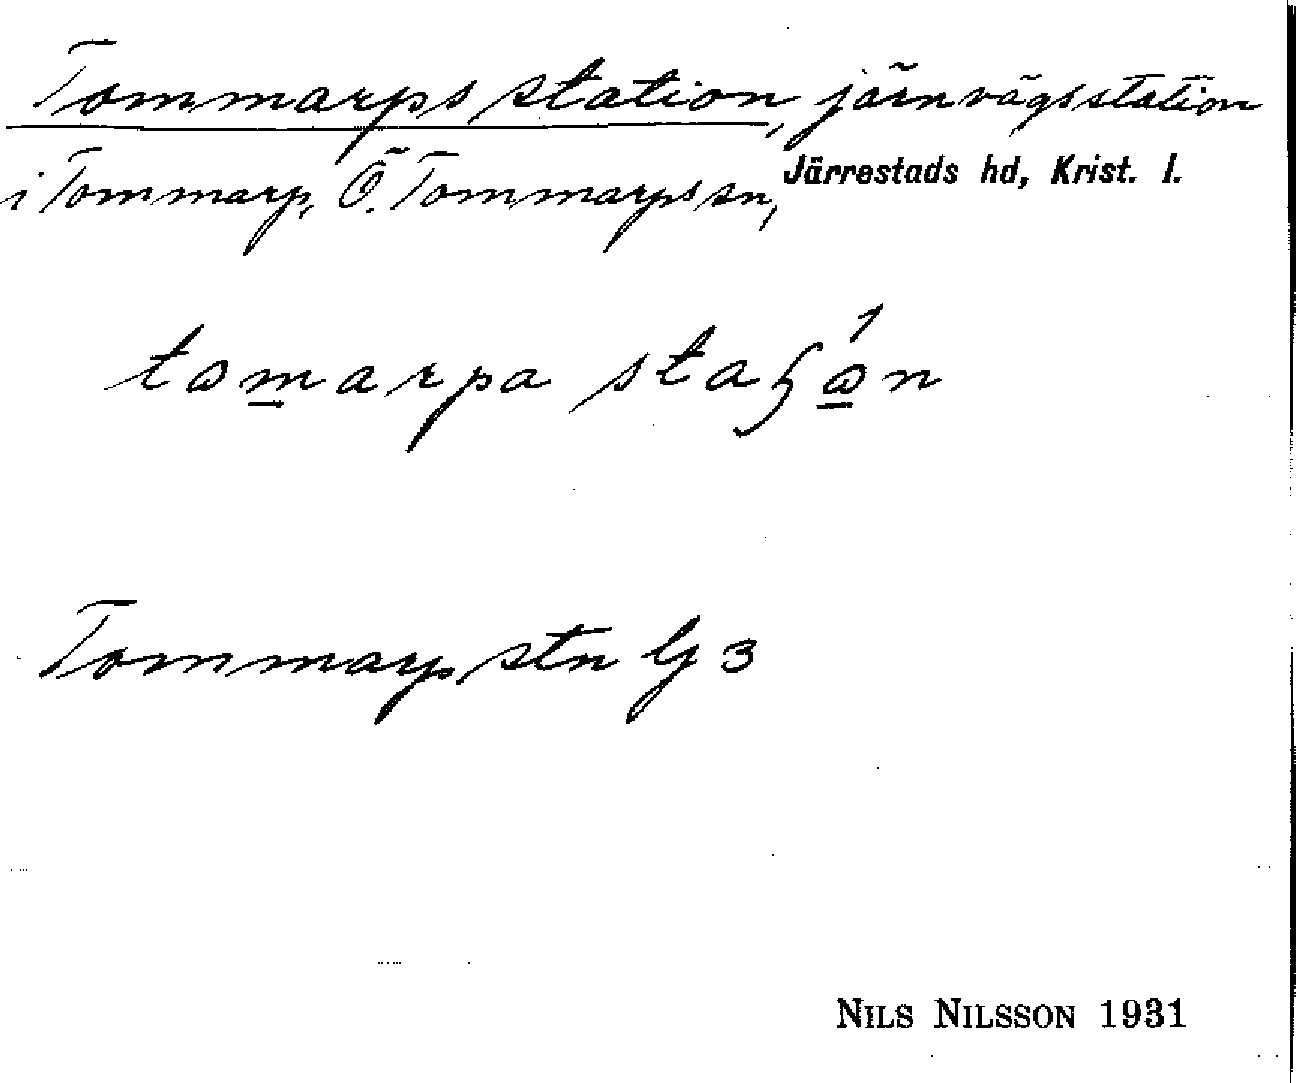 Tommarps station, järnvägsstation
i Tommarp, Ö. Tommarps sn, Järrestads hd, Krist. l.
tɷm̲arpa staɧɷ̲́n
Tommarp stn G 3
NILS NILSSON 1931